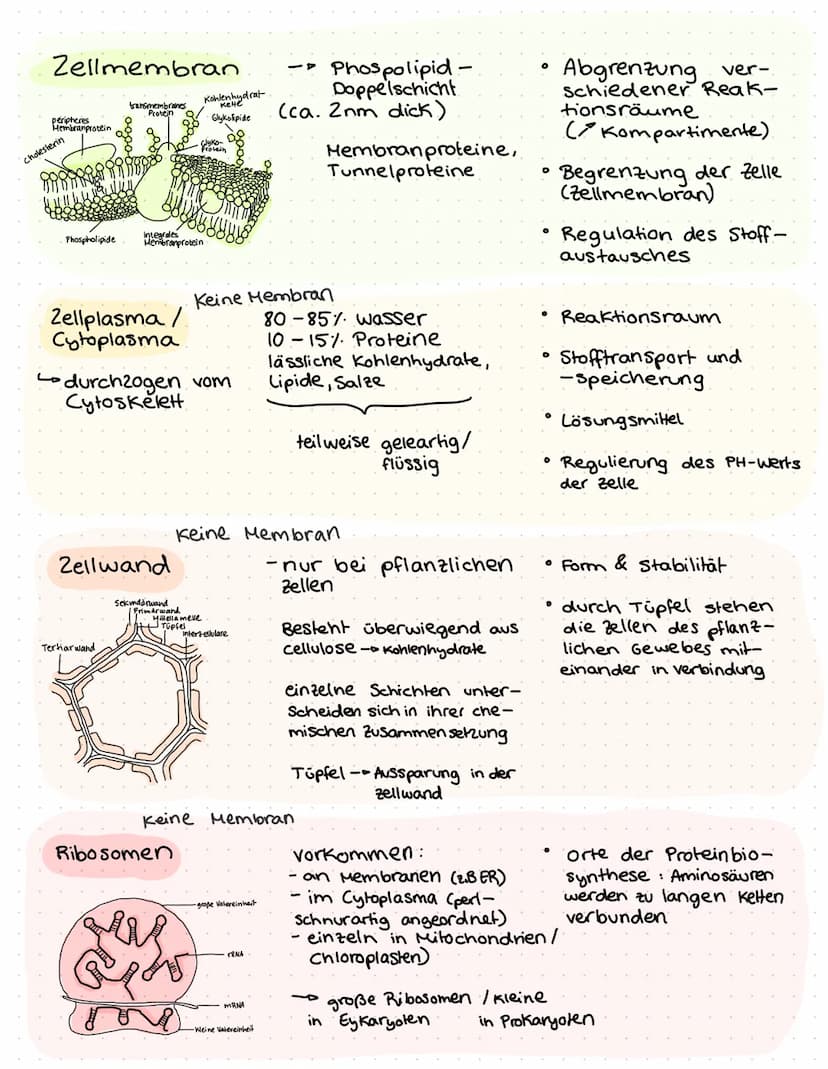 Zellmembran
Kohlenhydrat-
kette
transmembranes
Protein
Glykolipide
peripheres
Membranprotein
Glyko-
Protein
Cholesterin
Phospholipide
integrales
Membranprotein
--> Phospolipid -
Doppelschicht
(ca. 2nm dick)
Membranproteine,
Tunnelproteine
• Abgrenzung ver-
schiedener Reak-
tionsräume
(↗ Kompartimente)
• Begrenzung der Zelle
(Zellmembran)
• Regulation des Stoff-
austausches
Keine Membran
Zellplasma /
Cytoplasma
↳ durchzogen vom
Cytoskelett
80 - 85% Wasser
10 - 15% Proteine
lässliche Kohlenhydrate,
Lipide, Salze
teilweise geleartig/
flüssig
• Reaktionsraum
• Stofftransport und
-speicherung
• Lösungsmittel
• Regulierung des PH-Werts
der Zelle
Keine Membran
Zellwand
Sekundärwand
Primärwand
Mittellamelle
Tüpfel
Interzelulare
Terharwand
- nur bei pflanzlichen
Zellen
Besteht überwiegend aus
Cellulose --> Kohlenhydrate
einzelne Schichten unter-
scheiden sich in ihrer che-
mischen Zusammensetzung
Tüpfel --> Aussparung in der
Zellwand
• Form & Stabilität
• durch Tüpfel stehen
die Zellen des pflanz-
lichen Gewebes mit-
einander in verbindung
Keine Membran
Ribosomen
große Untereinheit
rRNA
mRNA
kleine Untereinheit
Vorkommen:
- an Membranen (z.B ER)
- im Cytoplasma (perl-
schnurartig angeordnet)
- einzeln in Mitochondrien /
Chloroplasten)
→ große Ribosomen / kleine
in Eykaryoten in Prokaryoten
• Orte der Proteinbio-
synthese : Aminosäuren
werden zu langen Ketten
verbunden